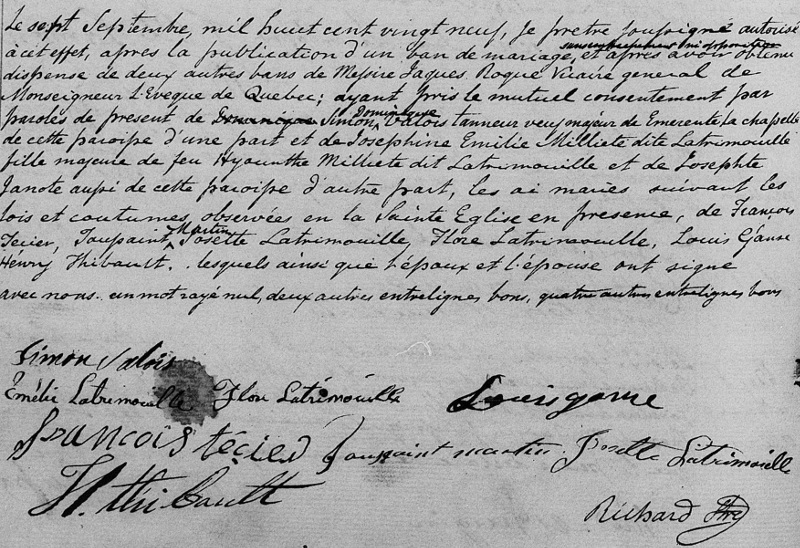 Le sept Septembre, mil huit cent vingt neuf, je pretre soussigné autorisé
à cet effet, après la publication d'un ban de mariage, et après avoir obtenu
dispense de deux autres bans de Messire Jaques Roque Vicaire general de
Monseigneur L'Eveque de Quebec; ayant pris le mutuel consentement par
Dominique
paroles de present de Dominique Simon Valois tanneur veuf majeur de Emerente la chapelle
de cette paroisse d'une part et de Josephine Emilie Milliete dite Latrimouille
fille majeure de feu Hyacinthe Milliete dit Latrimouille et de Josephte
Janote aussi de cette paroisse d'autre part, les ai mariés suivant les
lois et coutumes observées en la Sainte Eglise en presence, de François
Martin
Tecier, Toussaint Josette Latrimouille, Flore Latrimouille, Louis Ganne
Hénry Thibault. lesquels ainsi que l'époux et l'épouse ont signé
avec nous. un mot rayé nul, deux autres entrelignes bons, quatre autres entrelignes bons
Simon Valois
Emélie Latrimouille Flore Latrémouille Louis ganne
François tecier Toussaint martin Josette Latrimouille
H. thibault
Richard Ptre